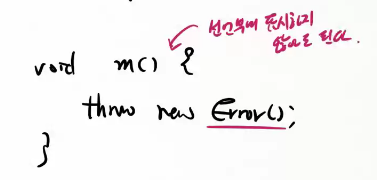 선언부에 표시하지
않아도 된다.
void m() {
throw new Error();
}